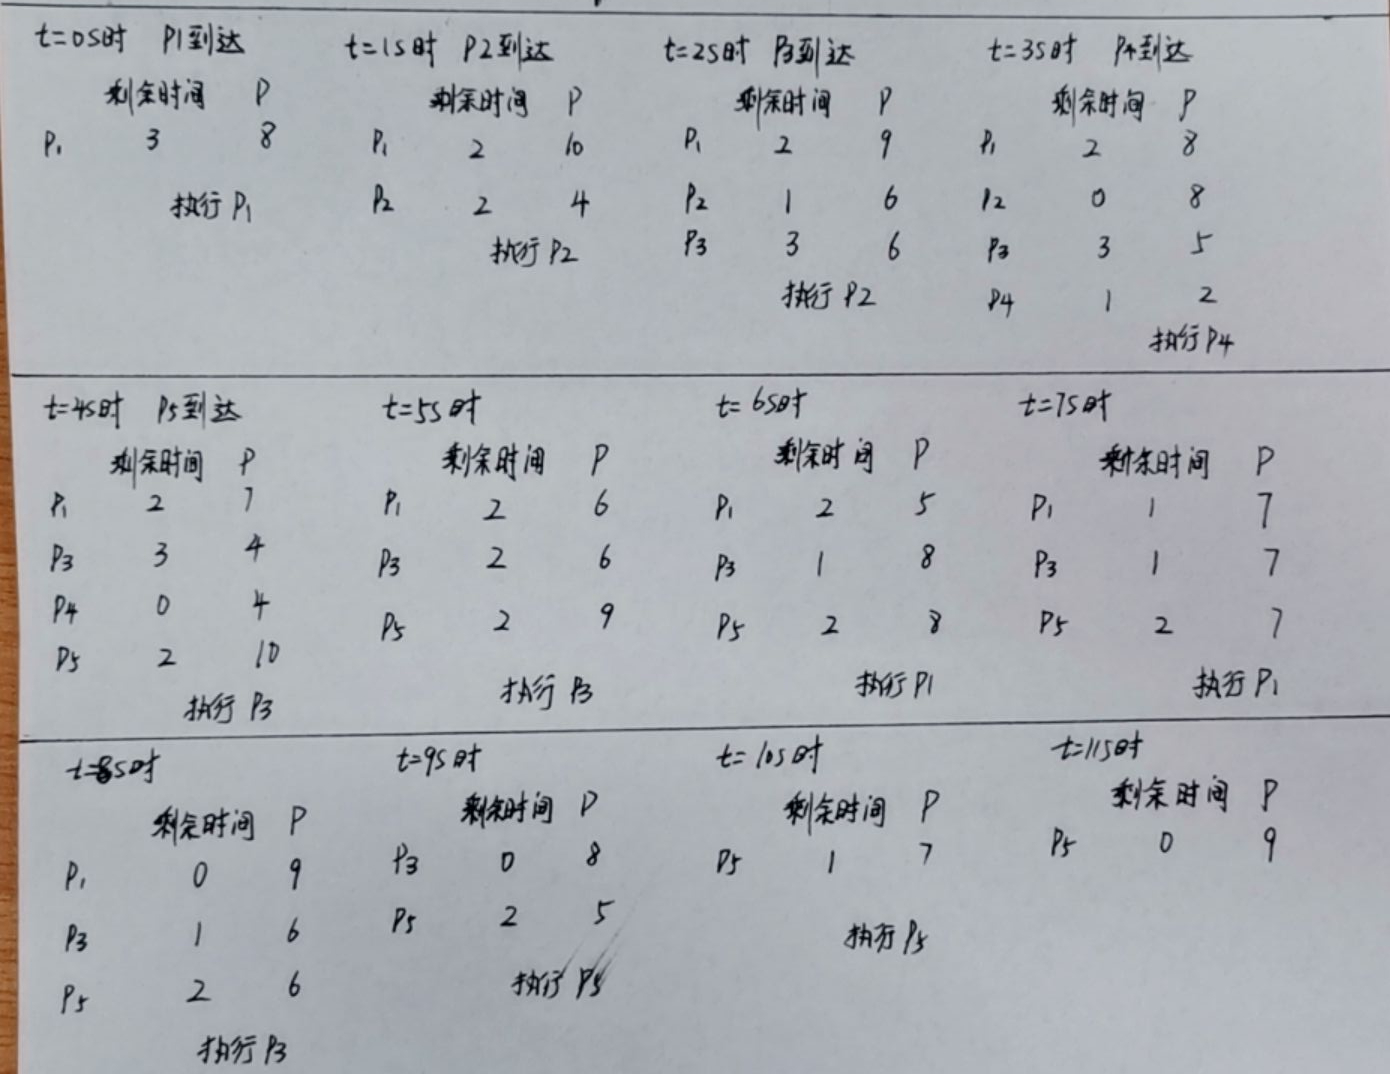 t=0s时 P1到达
剩余时间 P
P1 3 8
执行P1
t=1s时 P2到达
剩余时间 P
P1 2 10
P2 2 4
执行P2
t=2s时 P3到达
剩余时间 P
P1 2 9
P2 1 6
P3 3 6
执行P2
t=3s时 P4到达
剩余时间 P
P1 2 8
P2 0 8
P3 3 5
P4 1 2
执行P4
t=4s时 P5到达
剩余时间 P
P1 2 7
P3 3 4
P4 0 4
P5 2 10
执行P3
t=5s时
剩余时间 P
P1 2 6
P3 2 6
P5 2 9
执行P3
t=6s时
剩余时间 P
P1 2 5
P3 1 8
P5 2 8
执行P1
t=7s时
剩余时间 P
P1 1 7
P3 1 7
P5 2 7
执行P1
t=8s时
剩余时间 P
P1 0 9
P3 1 6
P5 2 6
执行P3
t=9s时
剩余时间 P
P3 0 8
P5 2 5
执行P5
t=10s时
剩余时间 P
P5 1 7
执行P5
t=11s时
剩余时间 P
P5 0 9